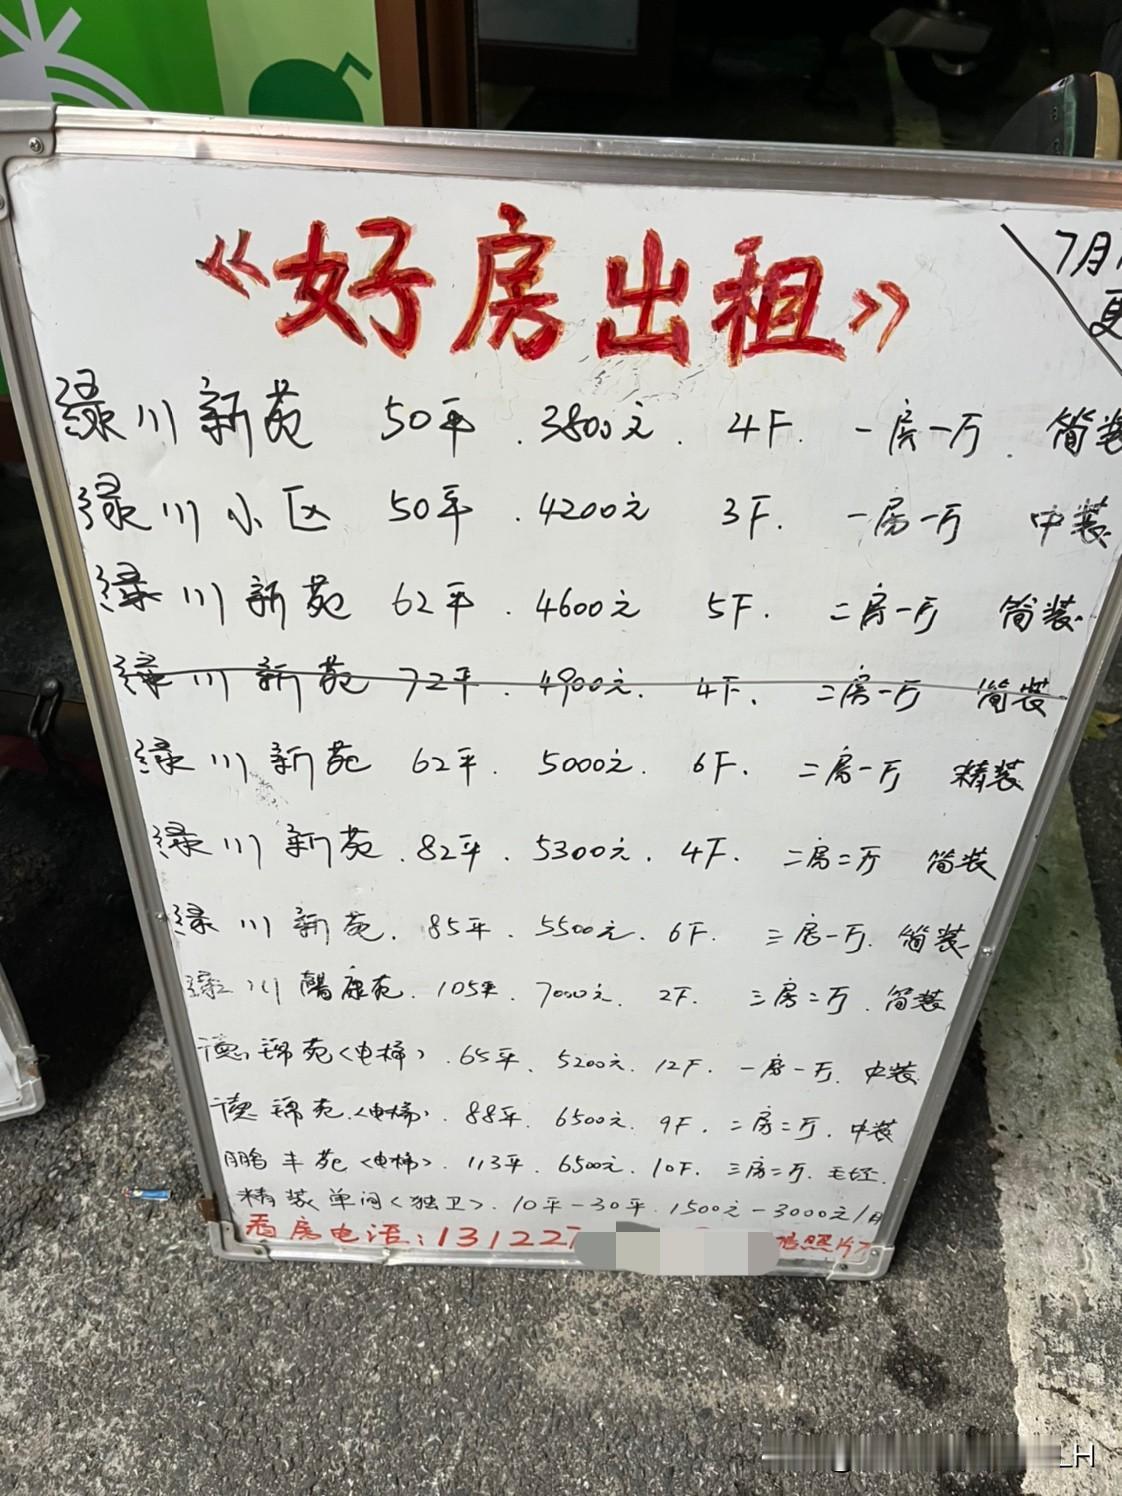 《好房出租》
7月
更
绿川新苑 50平. 3800元. 4F. 一房一厅. 简装
绿川小区 50平. 4200元 3F. 一房一厅 中装
绿川新苑 62平. 4600元 5F. 二房一厅 简装
绿川新苑 72平. 4900元. 4F. 二房一厅 简装
绿川新苑 62平. 5000元. 6F. 二房一厅 精装
绿川新苑. 82平. 5300元. 4F. 二房二厅 简装
绿川新苑. 85平. 5500元. 6F. 三房一厅. 简装
绿川馨康苑. 105平. 7000元. 2F. 三房二厅. 简装
德锦苑<电梯>. 65平. 5200元. 12F. 一房一厅. 中装
德锦苑.<电梯>. 88平. 6500元. 9F. 二房二厅. 中装
鹏丰苑<电梯>. 113平. 6500元. 10F. 三房二厅. 毛坯.
精装单间<独卫>. 10平-30平. 1500元-3000元/月
看房电话:13122 照片
LH